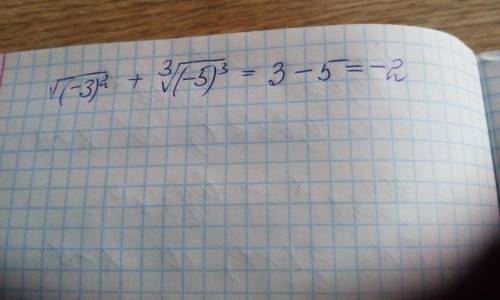 √(-3)² + ³√(-5)³ = 3 - 5 = -2